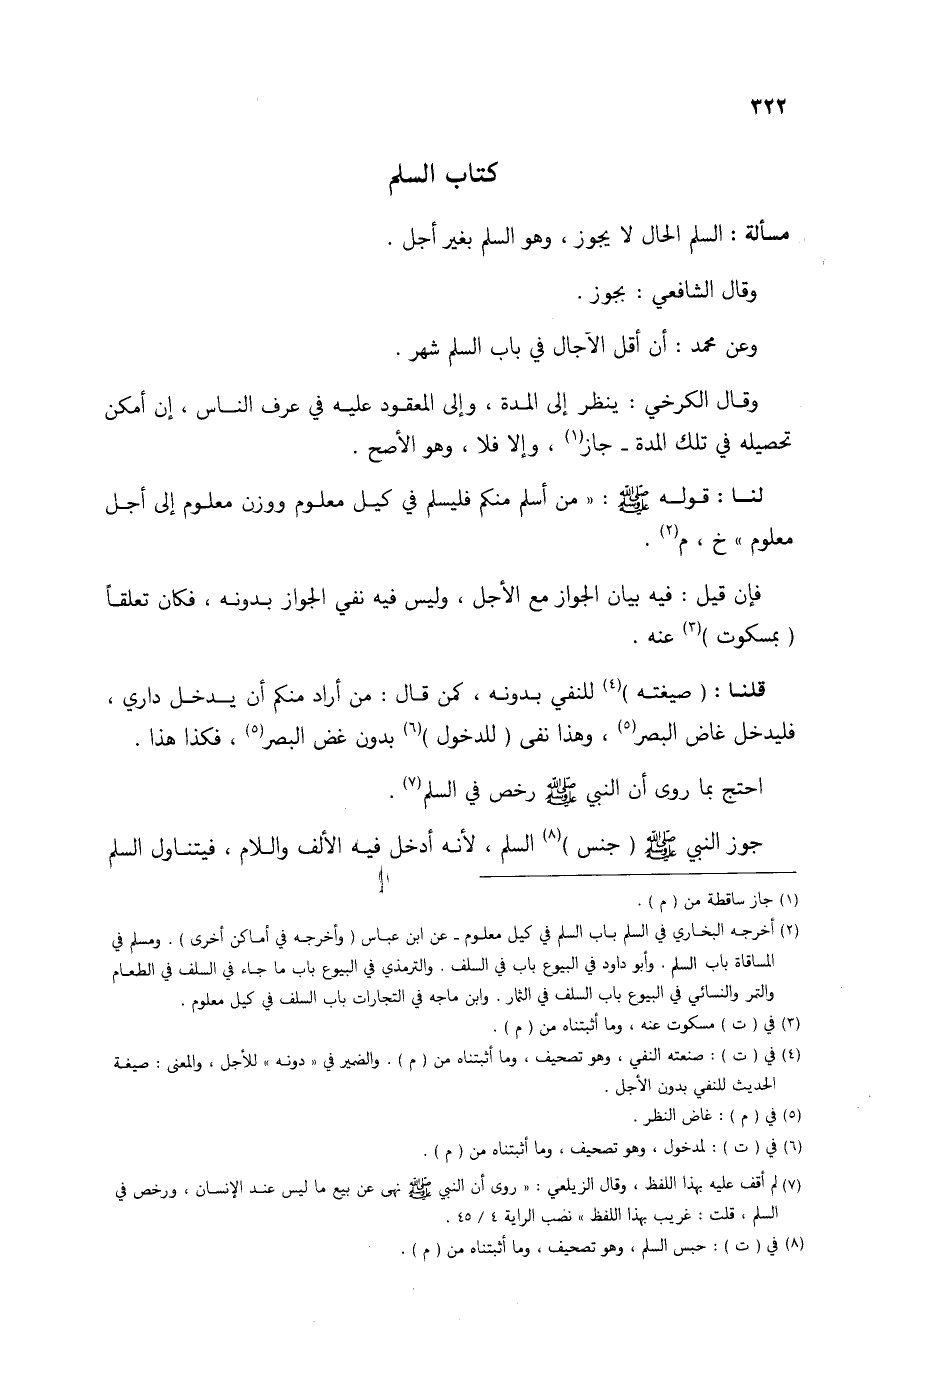 ٣٢٢
كتاب السلم
مسألة : السلم الحال لا يجوز ، وهو السلم بغير أجل .
وقال الشافعي : يجوز .
وعن محمد : أن أقل الآجال في باب السلم شهر .
وقال الكرخي : ينظر إلى المدة ، وإلى المعقود عليه في عرف الناس ، إن أمكن
تحصيله في تلك المدة ـ جاز(١) ، وإلا فلا ، وهو الأصح .
لنا : قوله ﷺ : « من أسلم منكم فليسلم في كيل معلوم ووزن معلوم إلى أجل
معلوم » خ ، م(٢) .
فإن قيل : فيه بيان الجواز مع الأجل ، وليس فيه نفي الجواز بدونه ، فكان تعلقاً
( بمسكوت )(٣) عنه .
قلنا : ( صيغته )(٤) للنفي بدونه ، كمن قال : من أراد منكم أن يدخل داري ،
فليدخل غاض البصر(٥) ، وهذا نفى ( للدخول )(٦) بدون غض البصر(٥) ، فكذا هذا .
احتج بما روى أن النبي ﷺ رخص في السلم(٧) .
جوز النبي ﷺ ( جنس )(٨) السلم ، لأنه أدخل فيه الألف واللام ، فيتناول السلم
(١) جاز ساقطة من ( م ) .
(٢) أخرجه البخاري في السلم باب السلم في كيل معلوم ـ عن ابن عباس ( وأخرجه في أماكن أخرى ) . ومسلم في
المساقاة باب السلم . وأبو داود في البيوع باب في السلف . والترمذي في البيوع باب ما جاء في السلف في الطعام
والتمر والنسائي في البيوع باب السلف في الثمار . وابن ماجه في التجارات باب السلف في كيل معلوم .
(٣) في ( ت ) مسكوت عنه ، وما أثبتناه من ( م ) .
(٤) في ( ت ) : صنعته النفي ، وهو تصحيف ، وما أثبتناه من ( م ) . والضمير في « دونه » للأجل ، والمعنى : صيغة
الحديث للنفي بدون الأجل .
(٥) في ( م ) : غاض النظر .
(٦) في ( ت ) : لمدخول ، وهو تصحيف ، وما أثبتناه من ( م ) .
(٧) لم أقف عليه بهذا اللفظ ، وقال الزيلعي : « روى أن النبي ﷺ نهى عن بيع ما ليس عند الإنسان ، ورخص في
السلم ، قلت : غريب بهذا اللفظ » نصب الراية ٤ / ٤٥ .
(٨) في ( ت ) : حبس السلم ، وهو تصحيف ، وما أثبتناه من ( م ) .